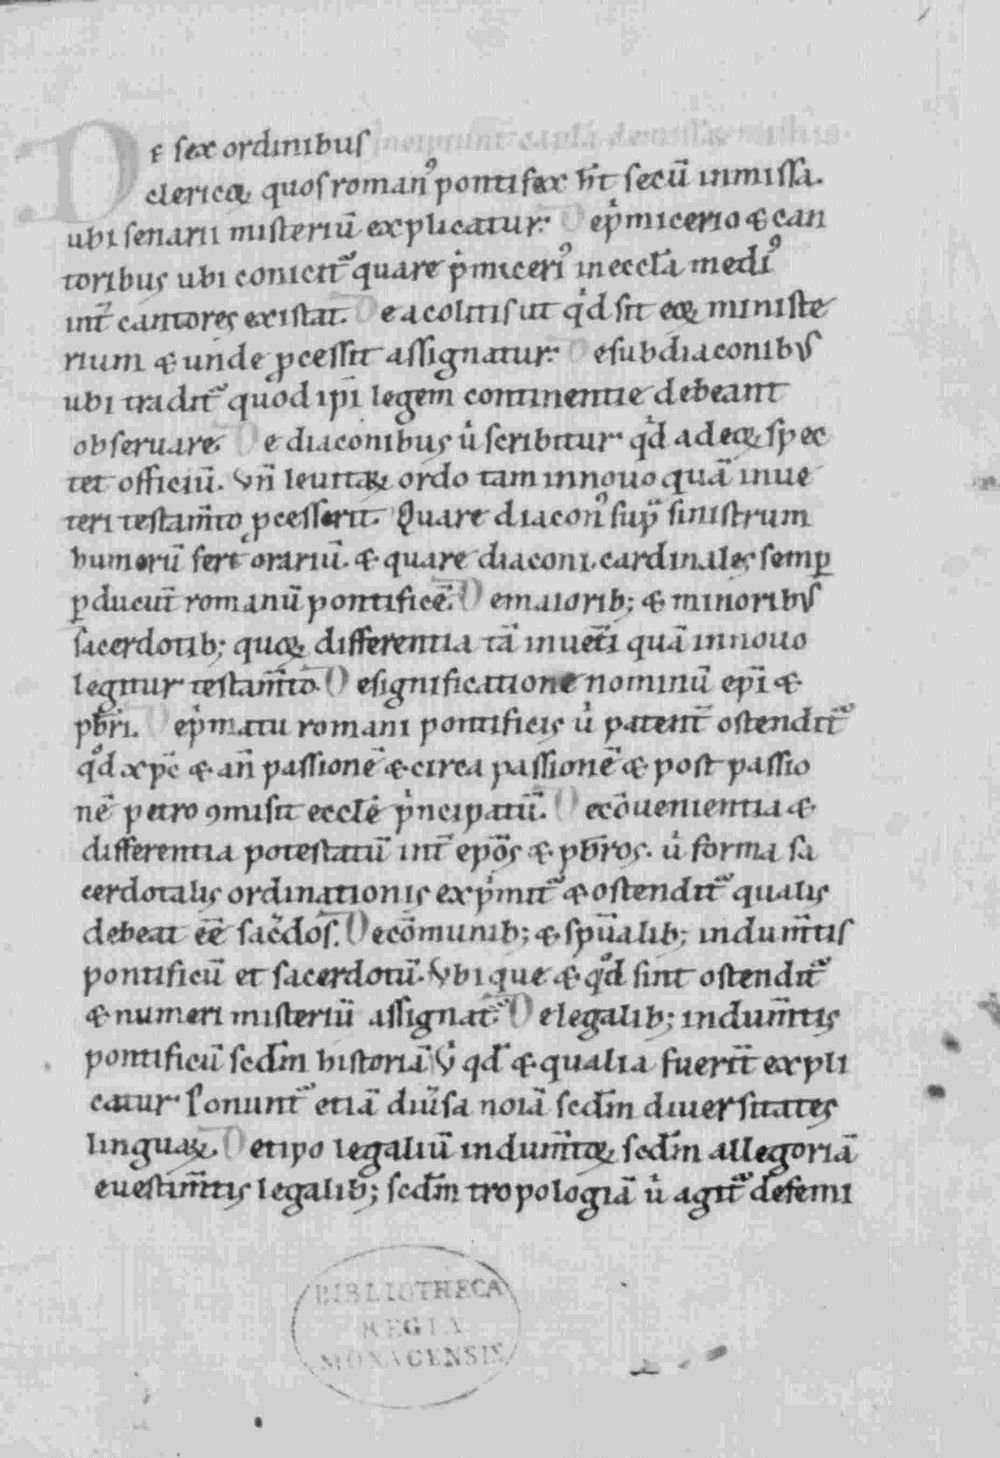 De sex ordinibus Incipiunt capła de missar̃ mihus
clericoꝝ quos romanꝰ pontifex hñt secū in missa.
ubi senarii misteriū explicatur. De pͥmicerio & can
toribus ubi conicit᷒ quare pͥmiceriꝰ in eccła mediꝰ
int̃ cantores existat. De acolitis ut qͥd sit eoꝝ ministe
rium & unde ꝓcessit assignatur. De subdiaconibus
ubi tradit᷒ quod ipi̅ legem continentie debeant
obseruare. De diaconibus uͥ scribitur qͥd ad eoꝝ spec
tet officiū. Vñ leuitaꝝ ordo tam in nouo quā in ue
teri testam̃to ꝓcesserit. Quare diaconꝰ sup̃ sinistrum
humerū fert orariū. & quare diaconi cardinales semꝑ
ꝑducūt romanū pontificē. De maiorib; & minoribus
sacerdotib; quoꝝ differentia tā in uet̃i quā in nouo
legitur testam̃to. De significatione nominū epi̅ &
pb̃ri. De pͥmatu romani pontificis uͥ patent̃ ostendit᷒
qͦd xp̃c & añ passionē & circa passionē & post passio
nē petro ꝯmisit eccl̃e pͥncipatū. De cōuenientia &
differentia potestatū int̃ ep̃os & pb̃ros. uͥ forma sa
cerdotalis ordinationis expͥmit᷒ & ostendit᷒ qualis
debeat eē sac̃dos. De cōmunib; & sp̃ualib; indum̃tis
pontificū et sacerdotū. Vbi que & qͦd sint ostendit᷒
& numeri misteriū assignat᷒. De legalib; indum̃tis
pontificū scd̃m historiā Vͥ qd̃ & qualia fuerīt expli
catur. Ponunt᷒ etiā diũsa noīa scd̃m diuersitates
linguaꝝ. De tipo legaliū indum̃toꝝ scd̃m allegoriā
e uestim̃tis legalib; scd̃m tropologiā uͥ agit᷒ de femi
BIBLIOTHECA
REGIA
MONACENSIS